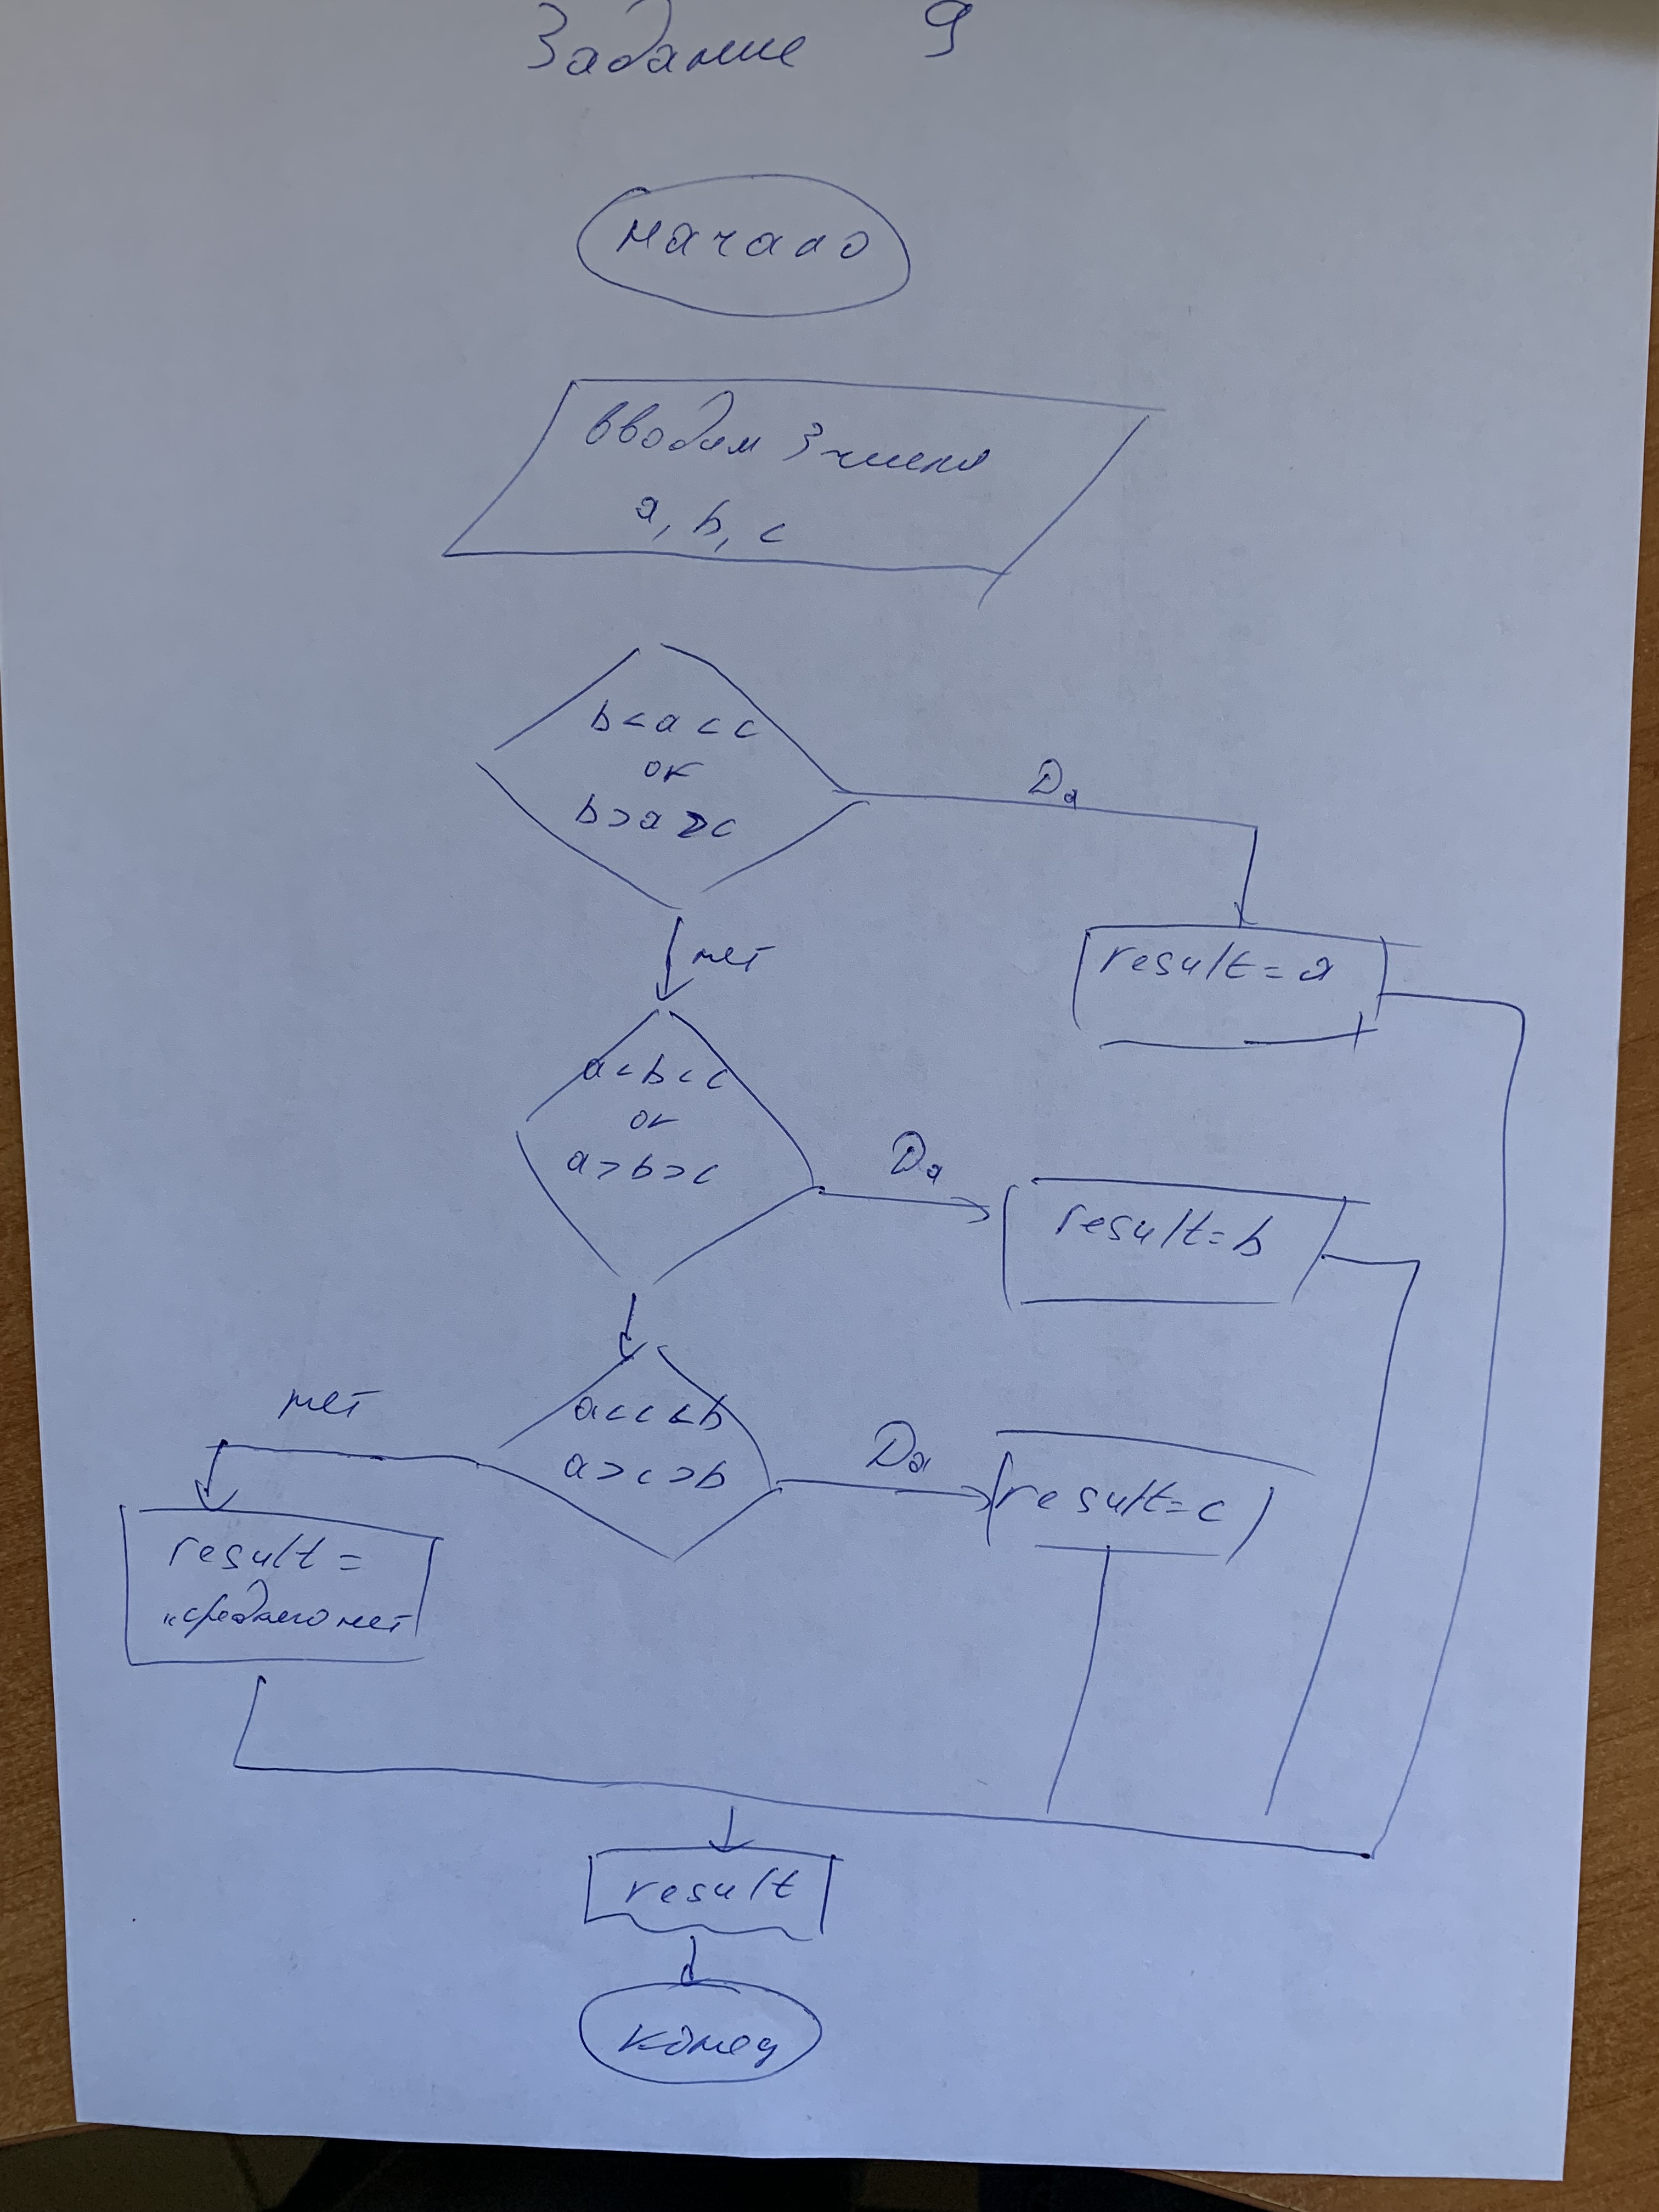 Задание 9
начало
вводим 3 числа
a, b, c
b < a < c
or
b > a > c
Да
нет
result = a
a < b < c
or
a > b > c
Да
result = b
нет
a < c < b
a > c > b
Да
result = c
result =
„среднего нет
result
конец